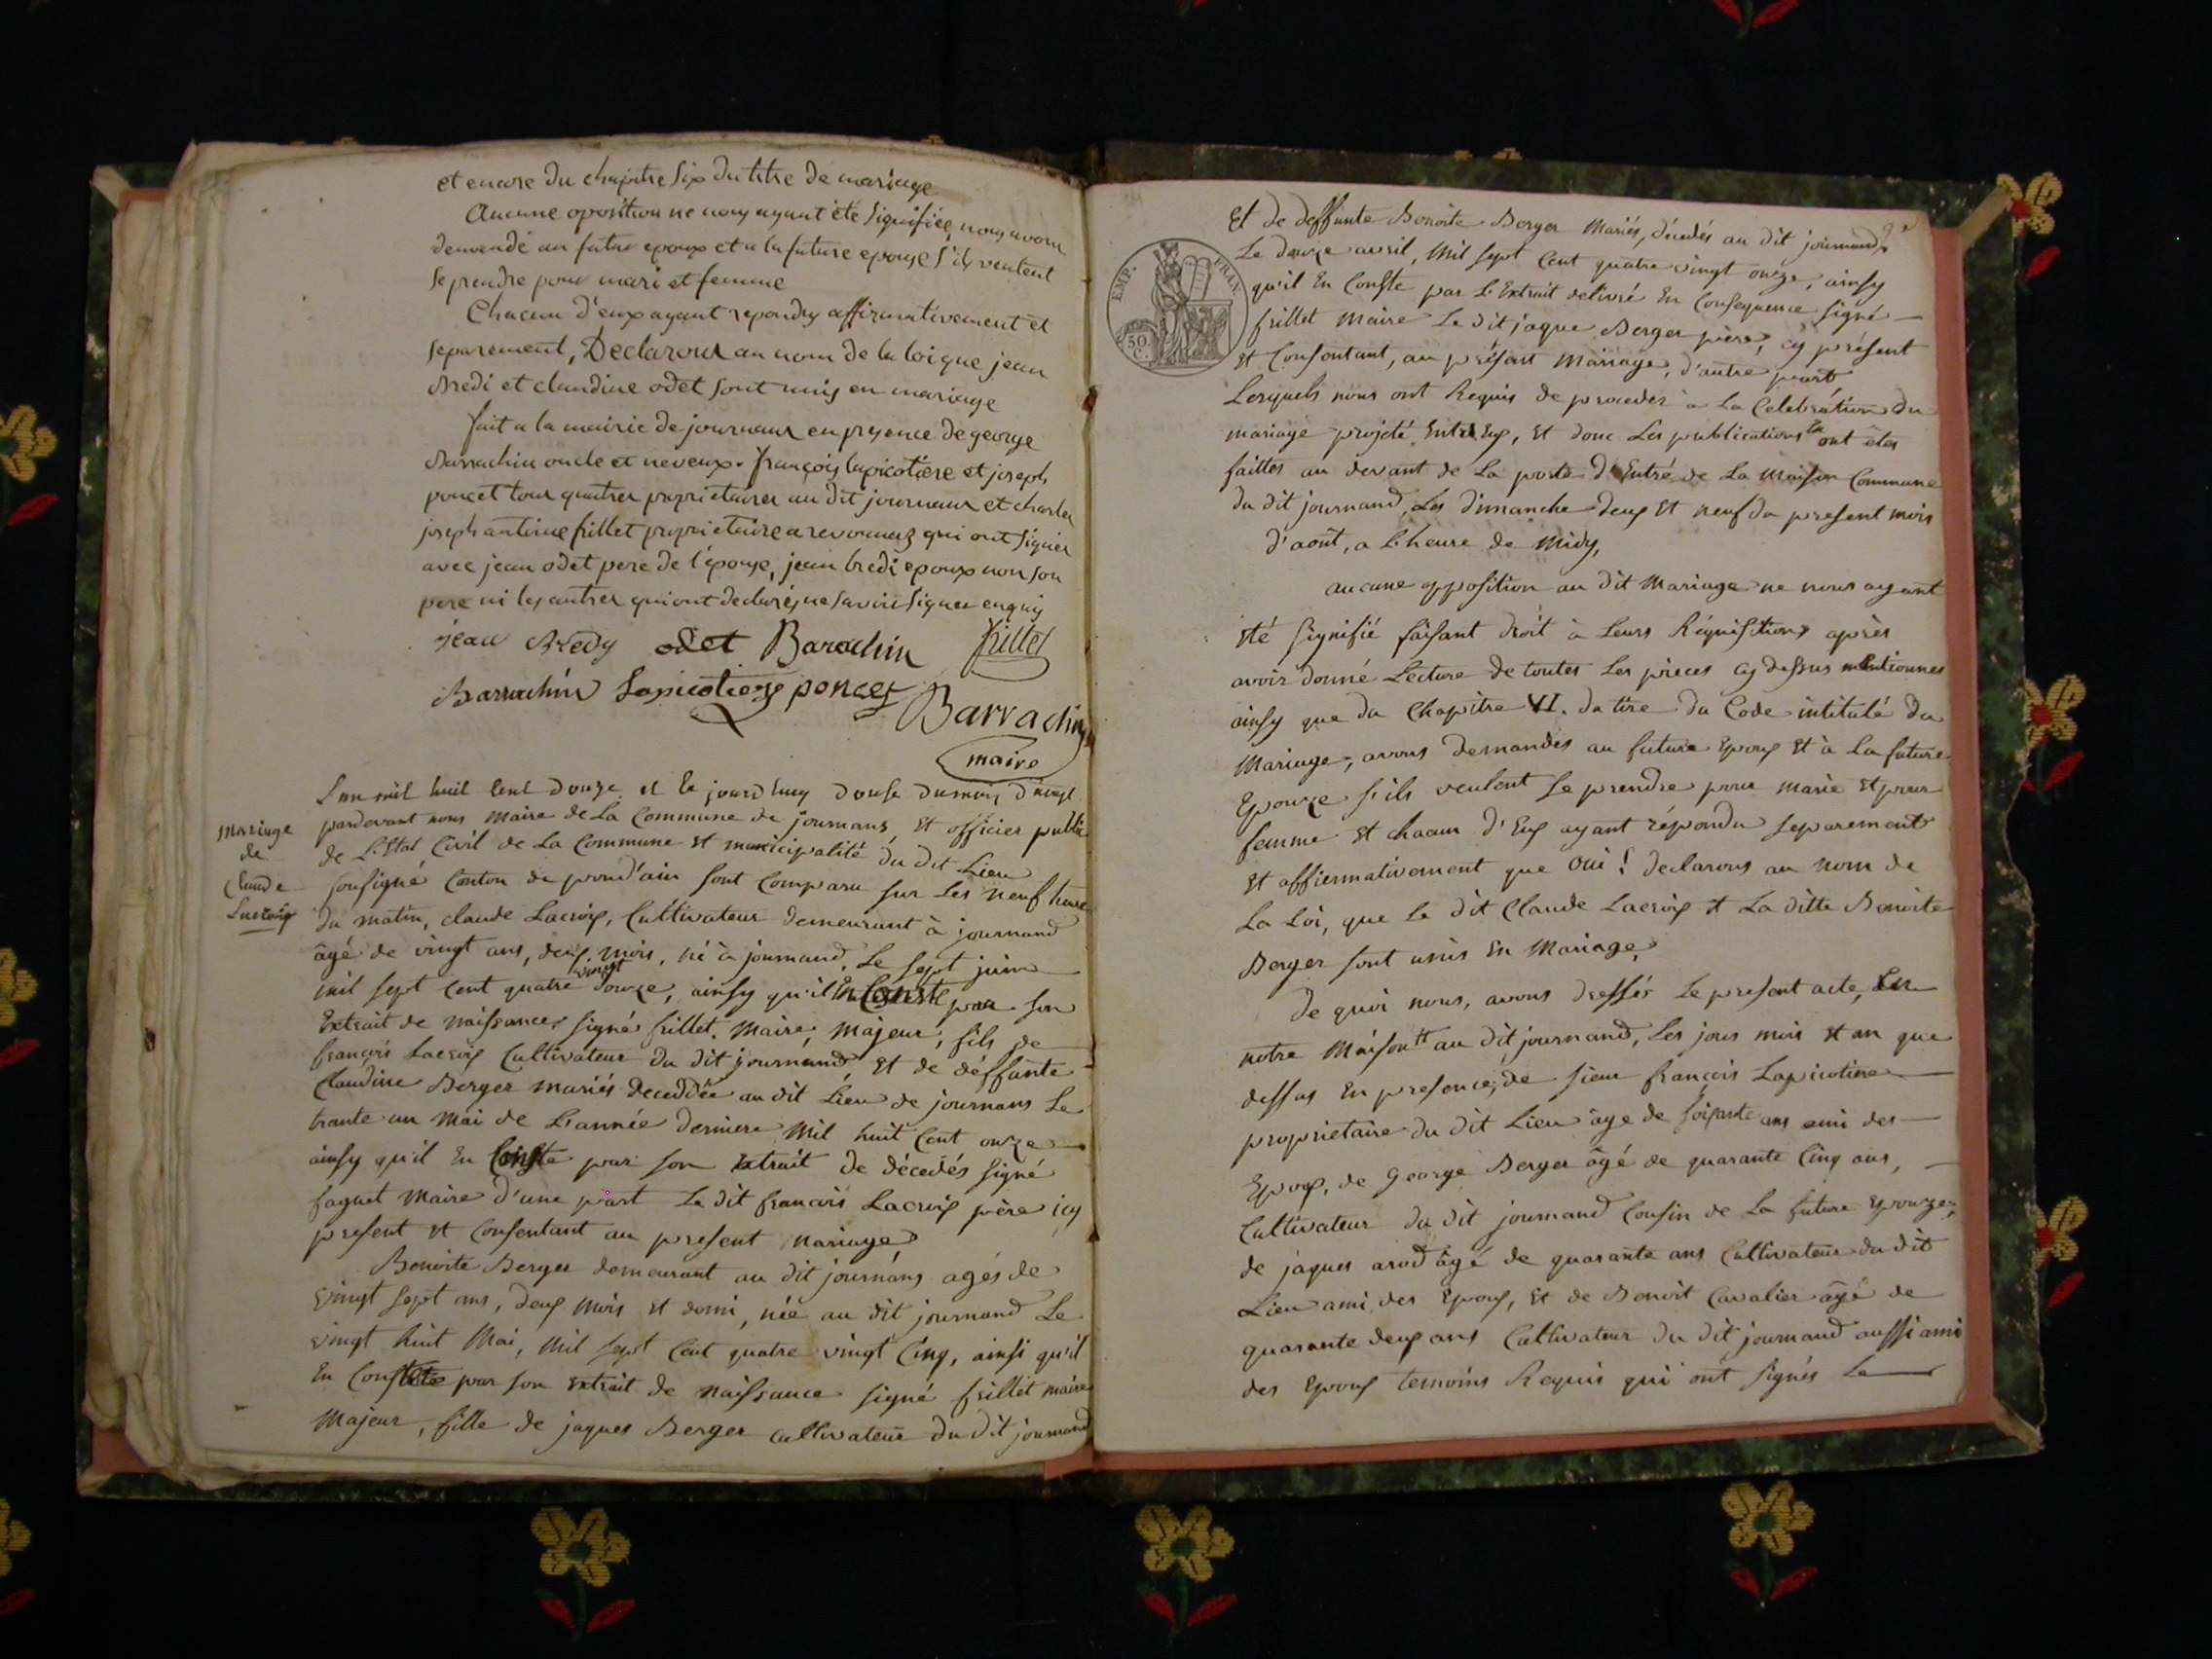 et encore du chapitre six du titre de mariage
Aucune oposition ne nous ayant été signifiée, nous avons
demandé au futur epoux et a la future epouse s'ils veulent
se prendre pour mari et femme
Chacun d'eux ayant repondus affirmativement et
separement, Declarons au nom de la loi que jean
Bredi et claudine odet sont unis en mariage
fait a la mairie de journans en presence de george
Barrachin oncle et neveux. françois lapicotiere et joseph
poncet tous quatres proprietaires au dit journans et charles
joseph antoine frillet proprietaire a revonnaz qui ont signés
avec jean odet pere de l'épouse, jean bredi epoux non son
pere ni les autres qui ont declarés ne savoir signer enquis
jean Bredy odet Barachin frillet
Barrachin Lapicotiere poncet
Barrachin
maire
L'an mil huit cent douze et le jourd'huy douse du mois d'aoust
pardevant nous maire de La Commune de journans, Et officier public
Mariage
de L'Etat Civil de La Commune et municipalité du dit Lieu
de
Claude
soussigné Canton de pond'ain sont Comparu sur Les neuf heures
Lacroix
du matin, claude Lacroix, Cultivateur demeurant à journand
âgé de vingt ans, deux mois, né à journand, Le sept juin
vingt
mil sept Cent quatre douze, ainsy qu'il En Conste par son
Extrait de naissances signé frillet Maire, Majeur, fils de
françois Lacroix Cultivateur du dit journand, Et de deffunte
Claudine Berger mariés deceddée au dit Lieu de journans Le
trante un Mai de L'année derniere Mil huit Cent onze
ainsy qu'il En Conste par son Extrait de décedés signé
faguet Maire d'une part Le dit francois Lacroix père icy
present Et Consentant au present Mariage,
Benoite Berger demeurant au dit journans agés de
vingt sept ans, deux mois Et demi, née au dit journand Le
vingt huit Mai, Mil sept Cent quatre vingt Cinq, ainsi qu'il
En Conste par son Extrait de Naissance signé frillet maire
Majeur, fille de jaques Berger cultivateur du dit journand
Et de deffunte Benoite Berger Mariés, décedés au dit journand,
EMP. FRAN.
50 C.
Le douze avril, Mil sept Cent quatre vingt onze, ainsy
qu'il En Conste par L'Extrait delivré En Consequence signé
frillet Maire Le dit jaque Berger père, cy présent
Et Consentant, au présent Mariage, d'autre part
Lesquels nous ont Requis de proceder à La Celebration du
mariage projeté Entr'Eux, Et donc Les publications ont êtes
faittes au devant de La porte d'Entré de La Maison Commune
du dit journand, Les dimanche deux Et neuf du present mois
d'août, a L'heure de Midy,
aucune opposition au dit Mariage ne nous ayant
Eté signifié faisant droit à Leurs Réquisitions après
avoir donné Lecture de toutes Les pieces cy dessus mentionnes
ainsy que du Chapitre VI. du titre du Code intitulé du
Mariage, avons demandés au future Epoux Et à La future
Epouze s'ils veulent se prendre pour marie Et pour
femme Et chacun d'Eux ayant répondu separement
Et affiermativement que Oui! declarons au nom de
La Loi, que Le dit Claude Lacroix Et La ditte Benoite
Berger sont unis En Mariage,
De quoi nous, avons dressés Le present acte, En
notre Maison au dit journand, Les jours mois Et an que
dessus En presence, de sieur françois Lapicotiere
proprietaire du dit Lieu âge de soisante ans ami des
Epoux, de George Berger âgé de quarante Cinq ans,
Cultivateur du dit journand Cousin de La future Epouze,
de jaques arod âgé de quarante ans Cultivateur du dit
Lieu ami des Epoux, Et de Benoit Cavalier âgé de
quarante deux ans Cultivateur du dit journand aussi ami
des Epoux temoins Requis qui ont signés Le